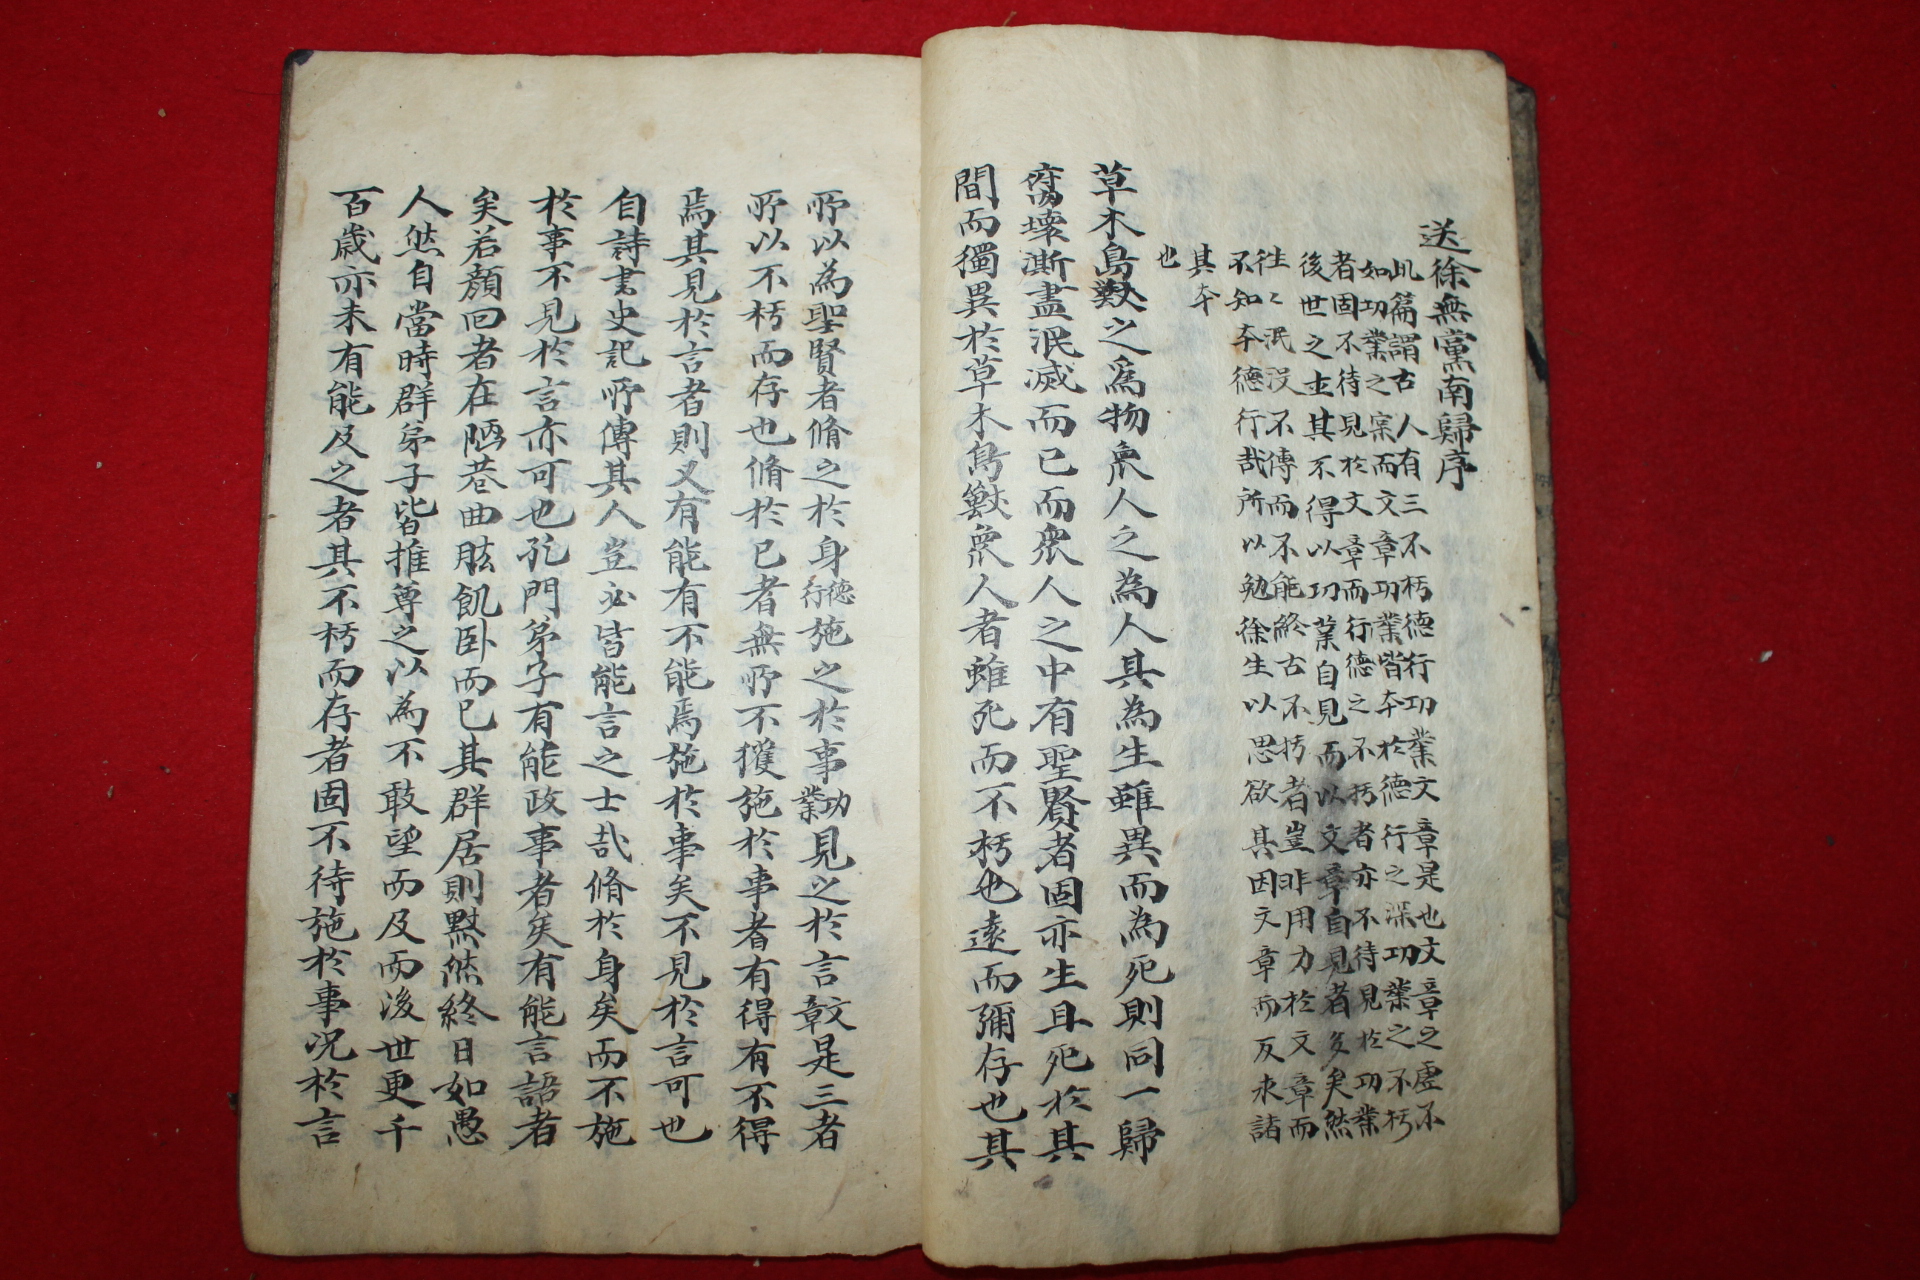 送徐無黨南歸序
此篇謂古人有三不朽德行功業文章是也文章之虛不
如功業之宲而文章功業皆夲於德行之深功業之不朽
者固不待見於文章而行德之不朽者亦不待見於功業
後世之士其不得以功業自見而以文章自見者多矣然
往々泯没不傳而不能終古不朽者豈非用力於文章而
不知夲德行哉所以勉徐生以思欲其因文章而反求諸
其夲
也
草木鳥獸之爲物衆人之為人其為生雖異而為死則同一歸
腐壞澌盡泯滅而已而衆人之中有聖賢者固亦生且死於其
間而獨異於草木鳥獸衆人者雖死而不朽也遠而彌存也其
所以為聖賢者脩之於身德行施之於事功業見之於言文章是三者
所以不朽而存也脩於已者無所不獲施於事者有得有不得
焉其見於言者則又有能有不能焉施於事矣不見於言可也
自詩書史記所傳其人豈必皆能言之士哉脩於身矣而不施
於事不見於言亦可也孔門弟子有能政事者矣有能言語者
矣若顔回者在陋巷曲肱飢卧而已其群居則默然終日如愚
人然自當時群弟子皆推尊之以為不敢望而及而後世更千
百歲亦未有能及之者其不朽而存者固不待施於事况於言